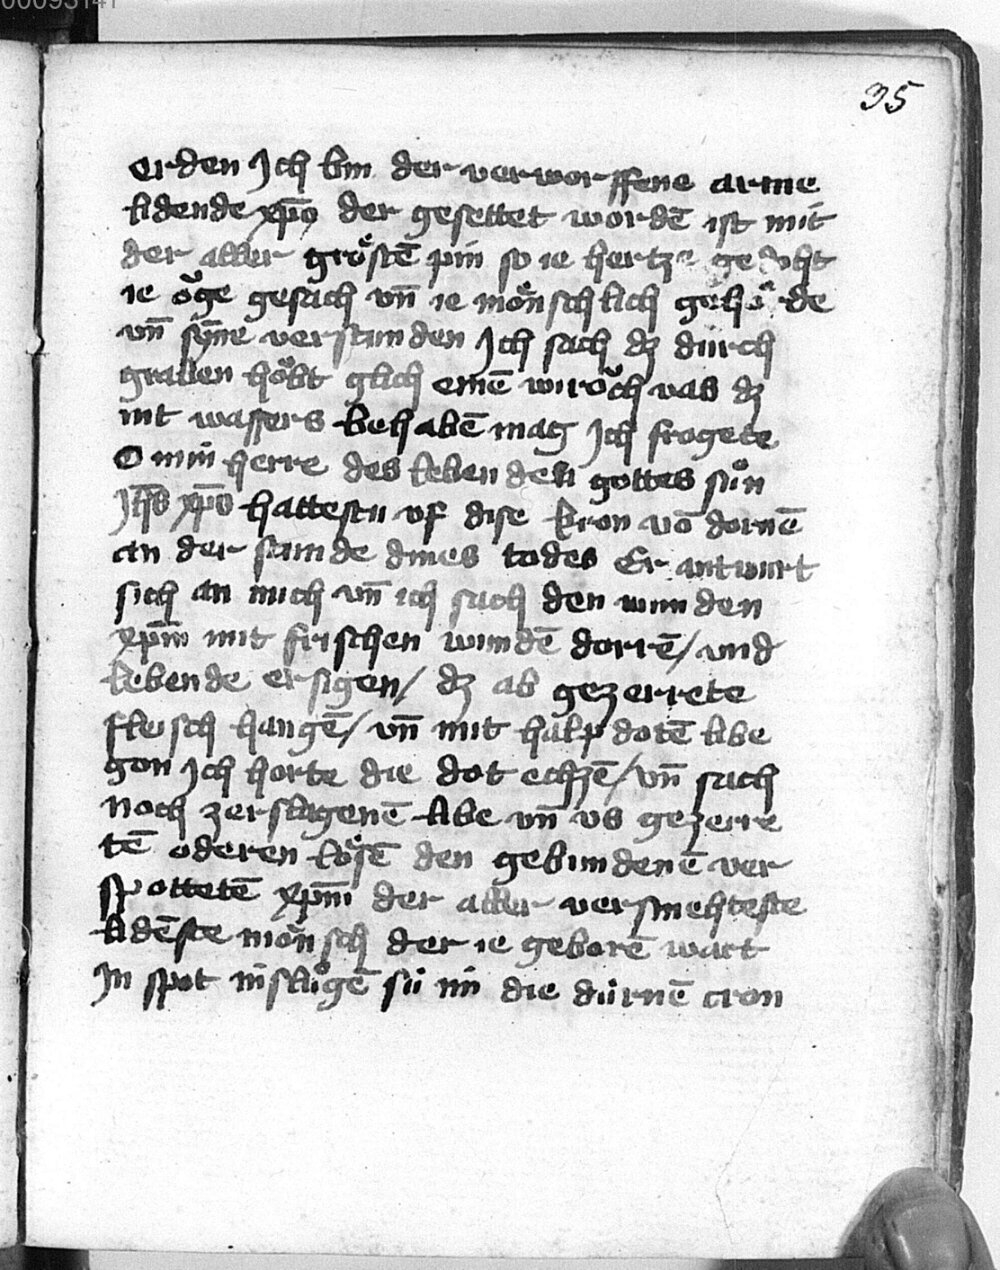 00093141
35
erden Ich bin der verworffene arme
lidende xp̄s der gesettet wordē ist mit
der aller grôstē pin so ie hertze gedoht
ie ôge gesach vn̄ ie mônschlich gehôrde
vn̄ sȳne verstunden Ich sach dz durch
graben hôbt glich einē wirôch vas dz
nit wassers behabē mag Ich frogete
O min herre des lebenden gottes sůn
Ih̄s xp̄s hattestu vf dise kron vō dornē
an der stunde dines todes Er antwurt
sich an mich vn̄ ich sach den wunden
xp̄m mit frischen wundē dorrē/ vnd
lebende ersigen/ dz ab gezerrete
fleisch hangē/ vn̄ mit halp dotē libe
gon Ich horte die dot echzē/ vn̄ sach
noch zerslagenē libe vn̄ vs gezerre
tē oderen lôsē den gebundenē ver
spottetē xp̄m der aller versmehteste
lidēste mônsch der ie geborē wart
In spot inslůgē sú im die dúrnē cron